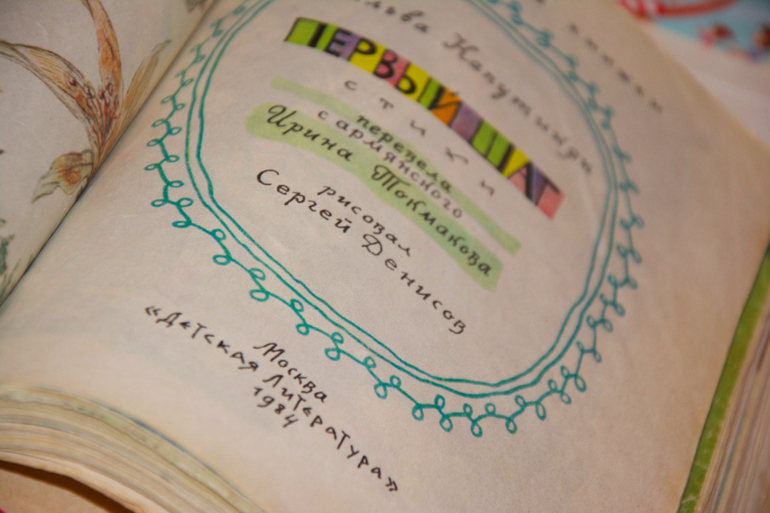 льва Капутикян
ПЕРВЫЙ ШАГ
стихи
перевела
с армянского
Ирина Токмакова
рисовал
Сергей Денисов
Москва
«Детская Литература»
1984